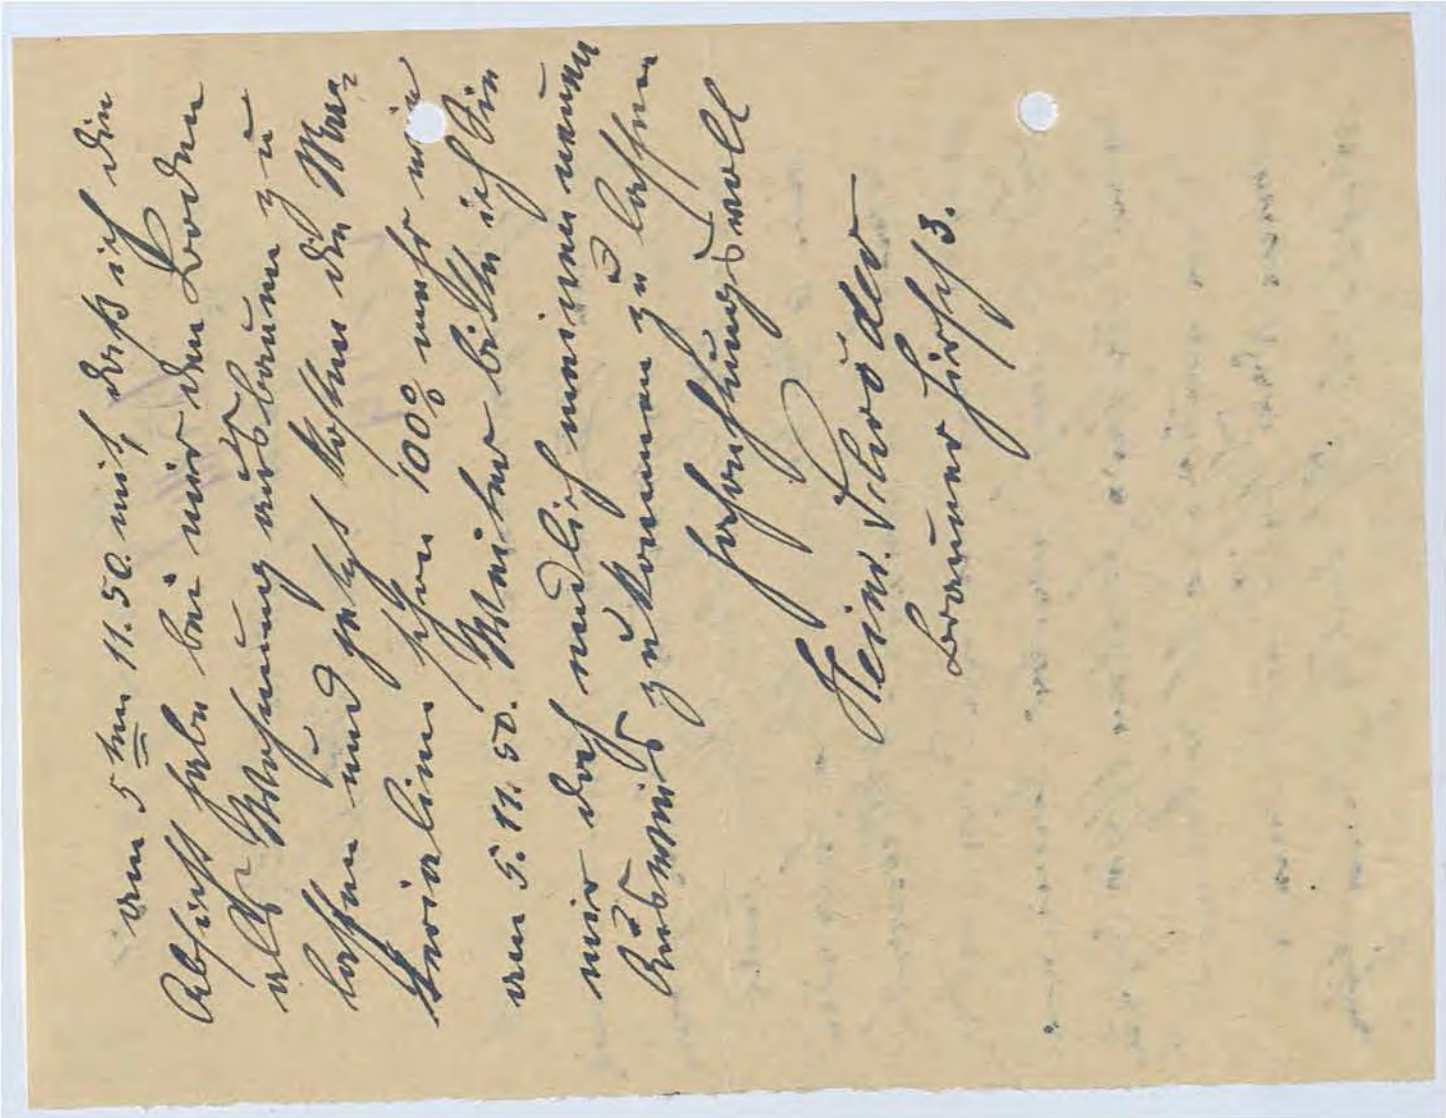 am 5ten 11.50. mit, daß ich die
Absicht habe bei mir den Boden
als Wohnung ausbauen zu
lassen und jetzt kosten die Ma-
terialien schon 100% mehr wie
am 5.11.50. Weiter bitte ich Sie
mir doch endlich meinen neuen
Ausweis zukommen zu lassen
Hochachtungsvoll
Heinr. Schröder
Brauner Hirsch 3.